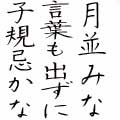 月並みな
言葉も出ずに
子規忌かな